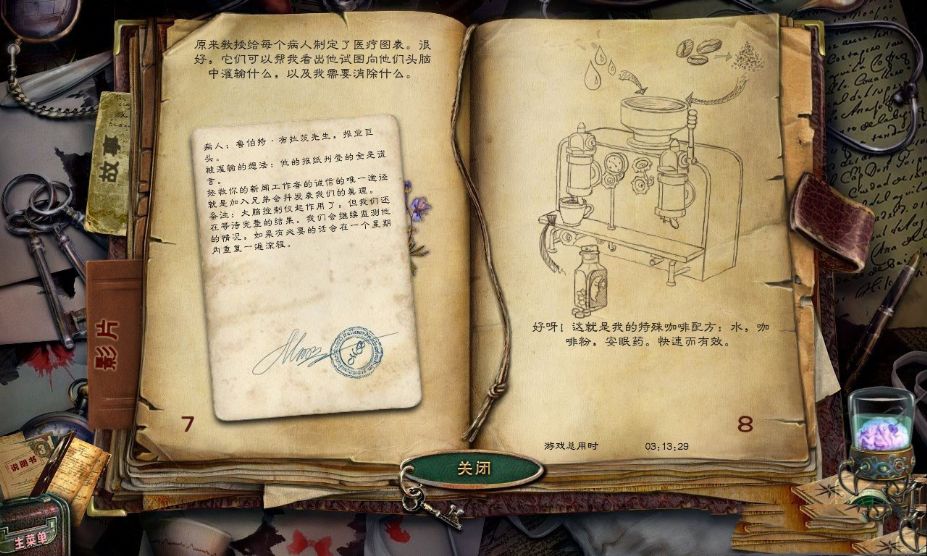 原来教授给每个病人制定了医疗图表。很
好，它们可以帮我看出他试图向他们头脑
中灌输什么，以及我需要消除什么。
病人：鲁伯特·布拉茨先生，报业巨
头。
被灌输的想法：他的报纸刊登的全是谎
言。
拯救你的新闻工作者的诚信的唯一途径
就是加入兄弟会并发表我们的真理。
备注：大脑控制仪起作用了，但我们还
在等待完整的结果。我们会继续监测他
的情况，如果有必要的话会在一个星期
内重复一遍流程。
7
好呀！这就是我的特殊咖啡配方：水，咖
啡粉，安眠药。快速而有效。
游戏总用时 03:13:29
8
故事
影片
说明书
主菜单
关闭